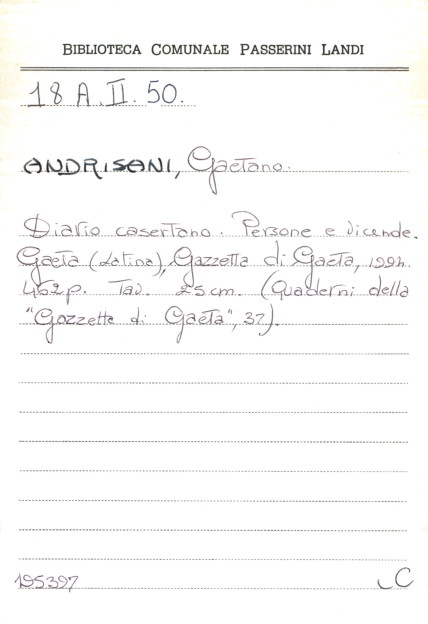 BIBLIOTECA COMUNALE PASSERINI LANDI
18 A. II. 50.
ANDRISANI, Gaetano.
Diario casertano. Persone e vicende.
Gaeta (Latina), Gazzetta di Gaeta, 1994.
462 p. Tav. 25 cm. (Quaderni della
"Gazzetta di Gaeta", 37).
195397
C